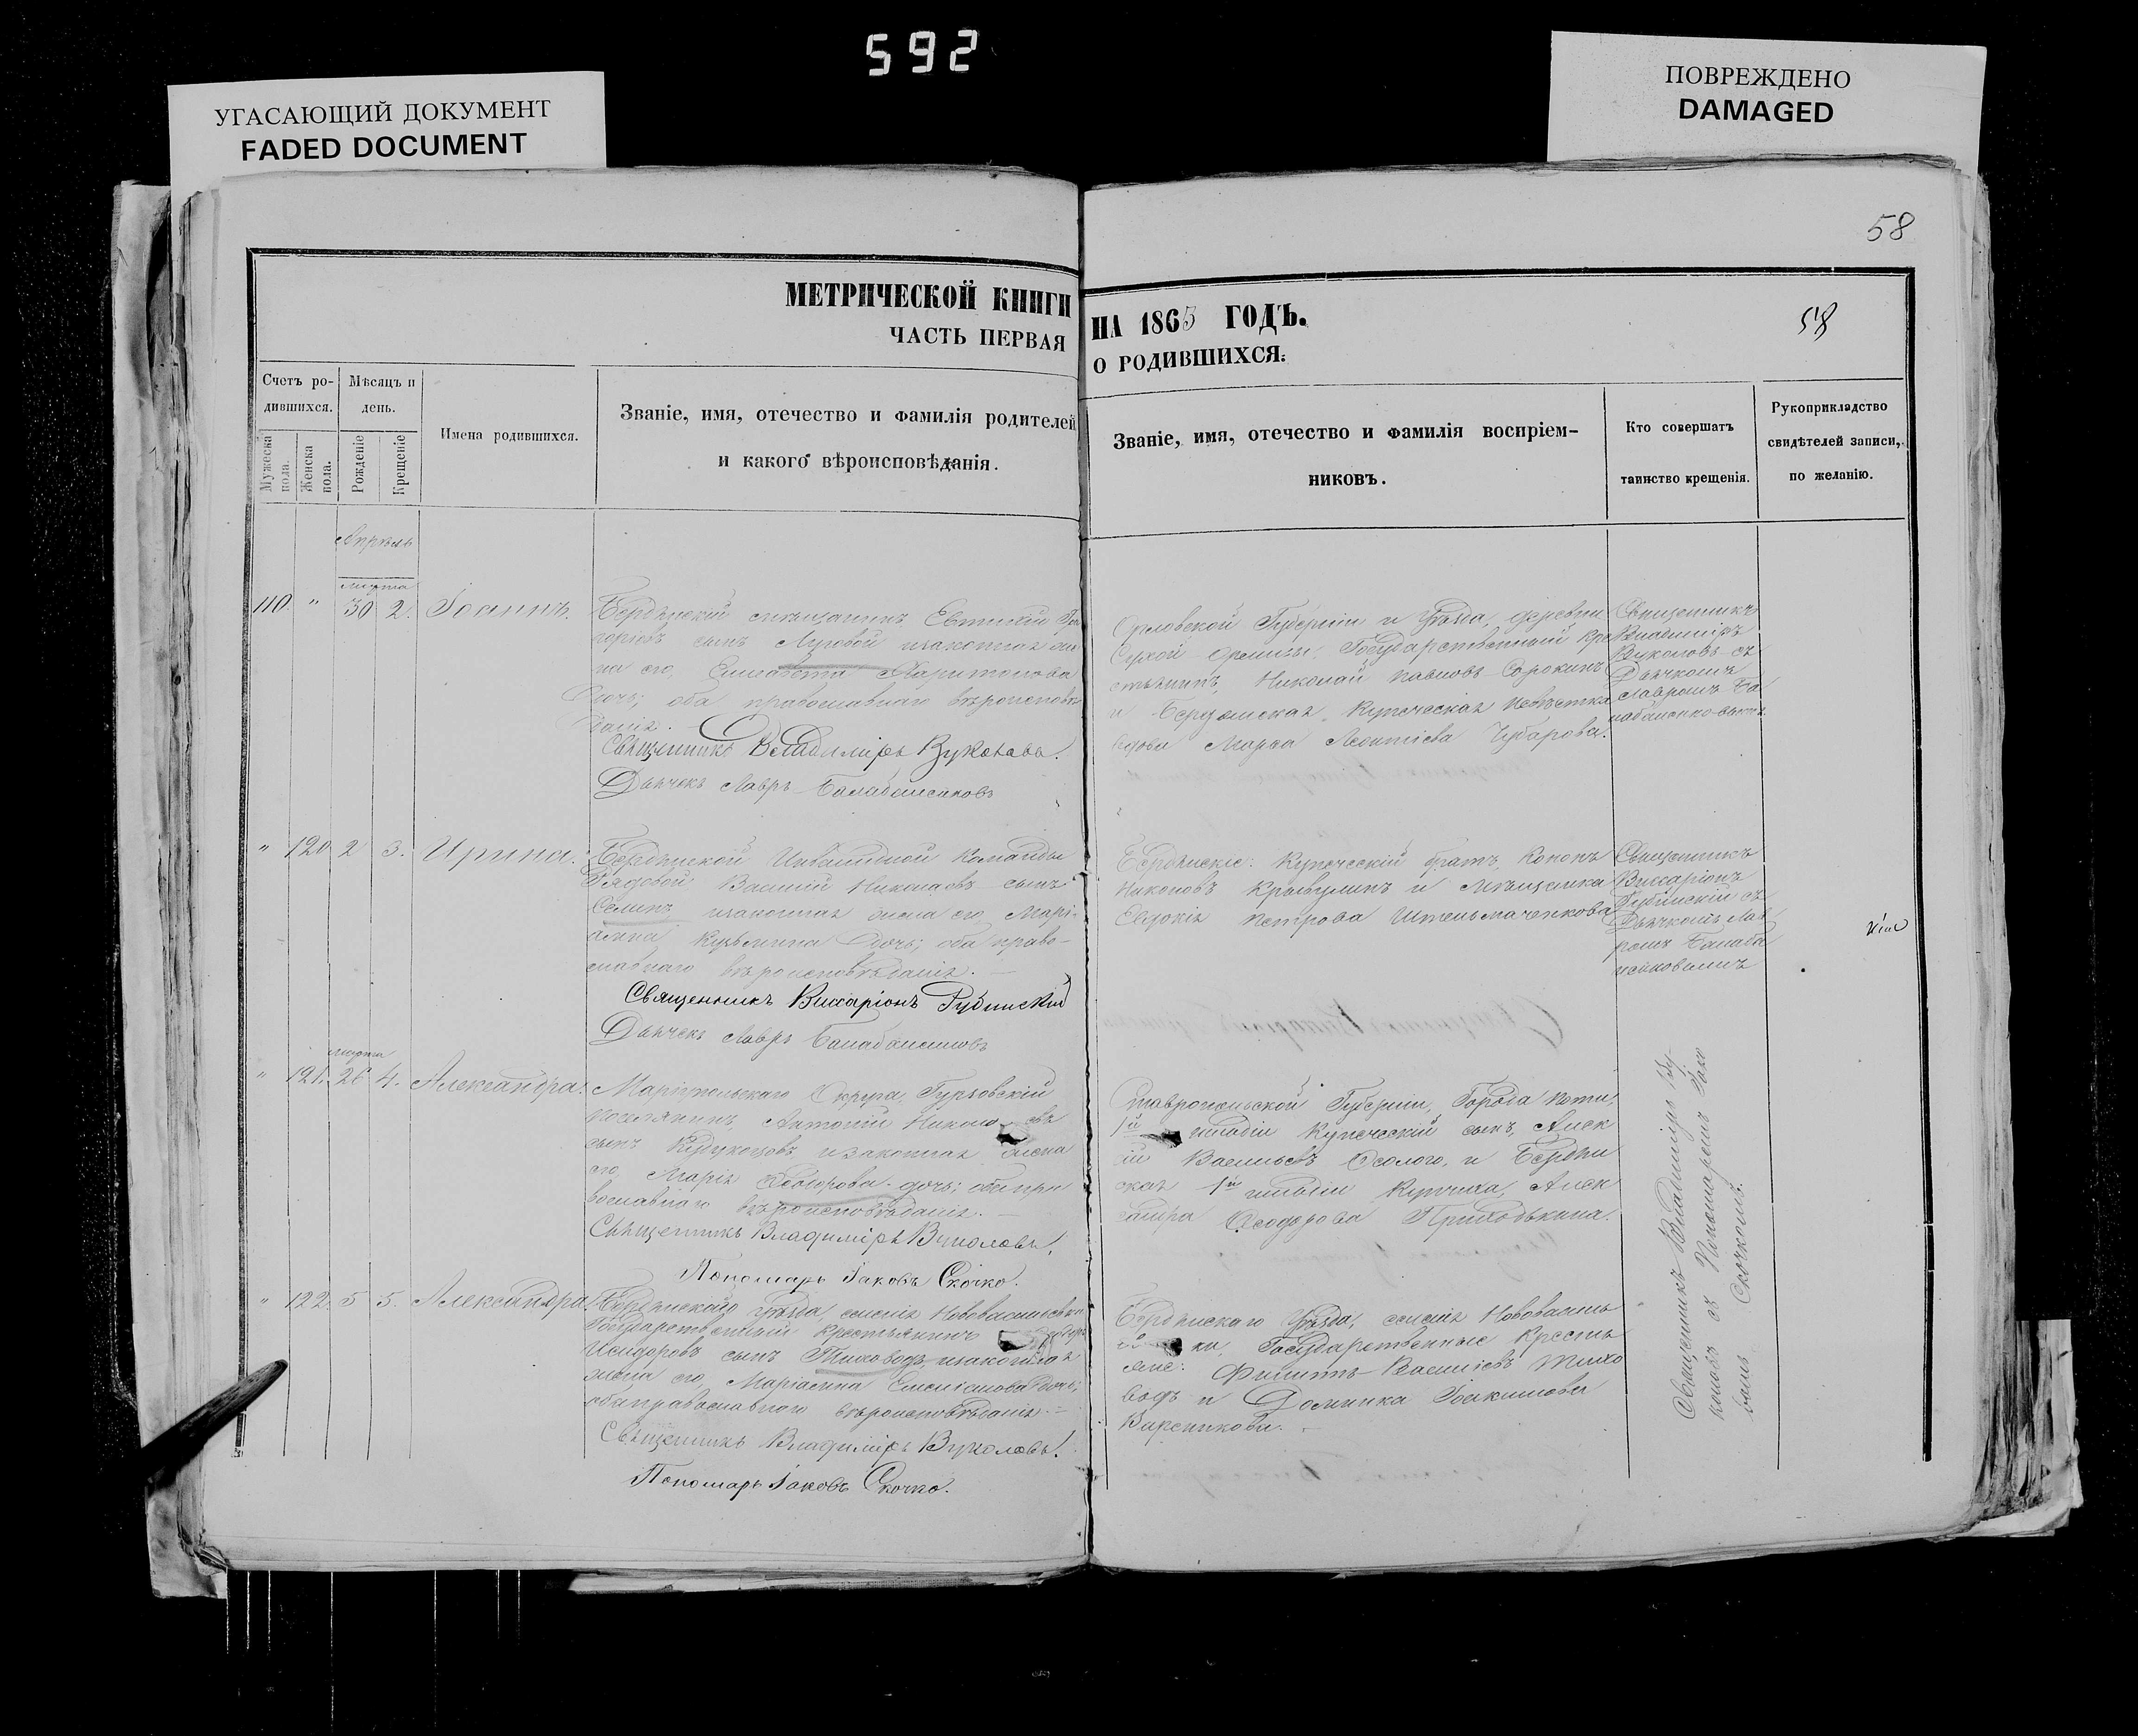 592
УГАСАЮЩИЙ ДОКУМЕНТ
FADED DOCUMENT
ПОВРЕЖДЕНО
DAMAGED
58
МЕТРИЧЕСКОЙ КНИГИ
ЧАСТЬ ПЕРВАЯ
НА 1865 ГОДЪ.
О РОДИВШИХСЯ:
58
Счетъ ро-
дившихся.
Мужеска пола.
Женска пола.
Мѣсяцъ и
день.
Рожденіе
Крещеніе
Имена родившихся.
Званіе, имя, отечество и фамилія родителей
и какого вѣроисповѣданія.
Званіе, имя, отечество и фамилія воспріем-
никовъ.
Кто совершатъ
таинство крещенія.
Рукоприкладство
свидѣтелей записи,
по желанію.
Апрѣль
марта
110 " 30 2. Іоаннъ.
Бердянскій мѣщанинъ Евтихій Гри
горіевъ сынъ Луговой изаконная же
на его, Елисавета Харитонова
дочь; оба православнаго вѣроисповѣ
данія.
Священникъ Владиміръ Вуколовъ.
Дьячекъ Лавръ
Орловской Губерніи и Уѣзда, деревни
Государственный Кре
стьянинъ, Николай Павловъ Сорокинъ
и Бердянская Купеческая Невѣстка
вдова Марѳа Леонтіева Чубарова.
Священникъ
Владиміръ
Вуколовъ съ
Дьячкомъ
Лавромъ
" 120 2 3. Ирина.
Бердянской Инвалидной Команды
Рядовой Василій Николаевъ сынъ
Семинъ изаконная жена его Марі-
амна Кузьмина дочь; оба право-
славнаго вѣроисповѣданія.
Священникъ Виссаріонъ Рубинскій
Дьячекъ Лавръ
Бердянскіе: Купеческій братъ Кононъ
Никоновъ и мѣщанка
Евдокія Петрова Штельмаченкова
Священникъ
Виссаріонъ
Рубинскій съ
Дьячкомъ Лав
ромъ
марта
" 121. 26 4. Александра.
Маріупольскаго Округа,
поселянинъ, Антоній
сынъ изаконная жена
его, Марія Ѳеодорова дочь; оба пра
вославнаго вѣроисповѣданія.
Священникъ Владиміръ Вуколовъ.
Пономарь Іаковъ Скочко.
Ставропольской Губерніи, Города
1й гильдіи Купеческій сынъ, Алек
сій Васильевъ и Бердян
ская 1й гильдіи Купчиха, Алек
сандра Ѳеодорова Приходькина.
Священникъ Владиміръ Ву-
коловъ съ Пономаремъ Іако
вомъ Скочкомъ.
" 122. 5 5. Александра
Бердянскаго Уѣзда, селенія Нововасильевки
Государственный Крестьянинъ
Исидоровъ сынъ Тиховодъ, изаконная
жена его, Маріамна Емеліанова дочь;
оба православнаго вѣроисповѣданія.
Священникъ Владиміръ Вуколовъ.
Пономарь Іаковъ Скочко.
Бердянскаго Уѣзда, селенія Нововасиль
ки, Государственные Кресть
яне: Филиппъ Васильевъ Тихо
водъ и Домника Іоакимова
Вареникова.